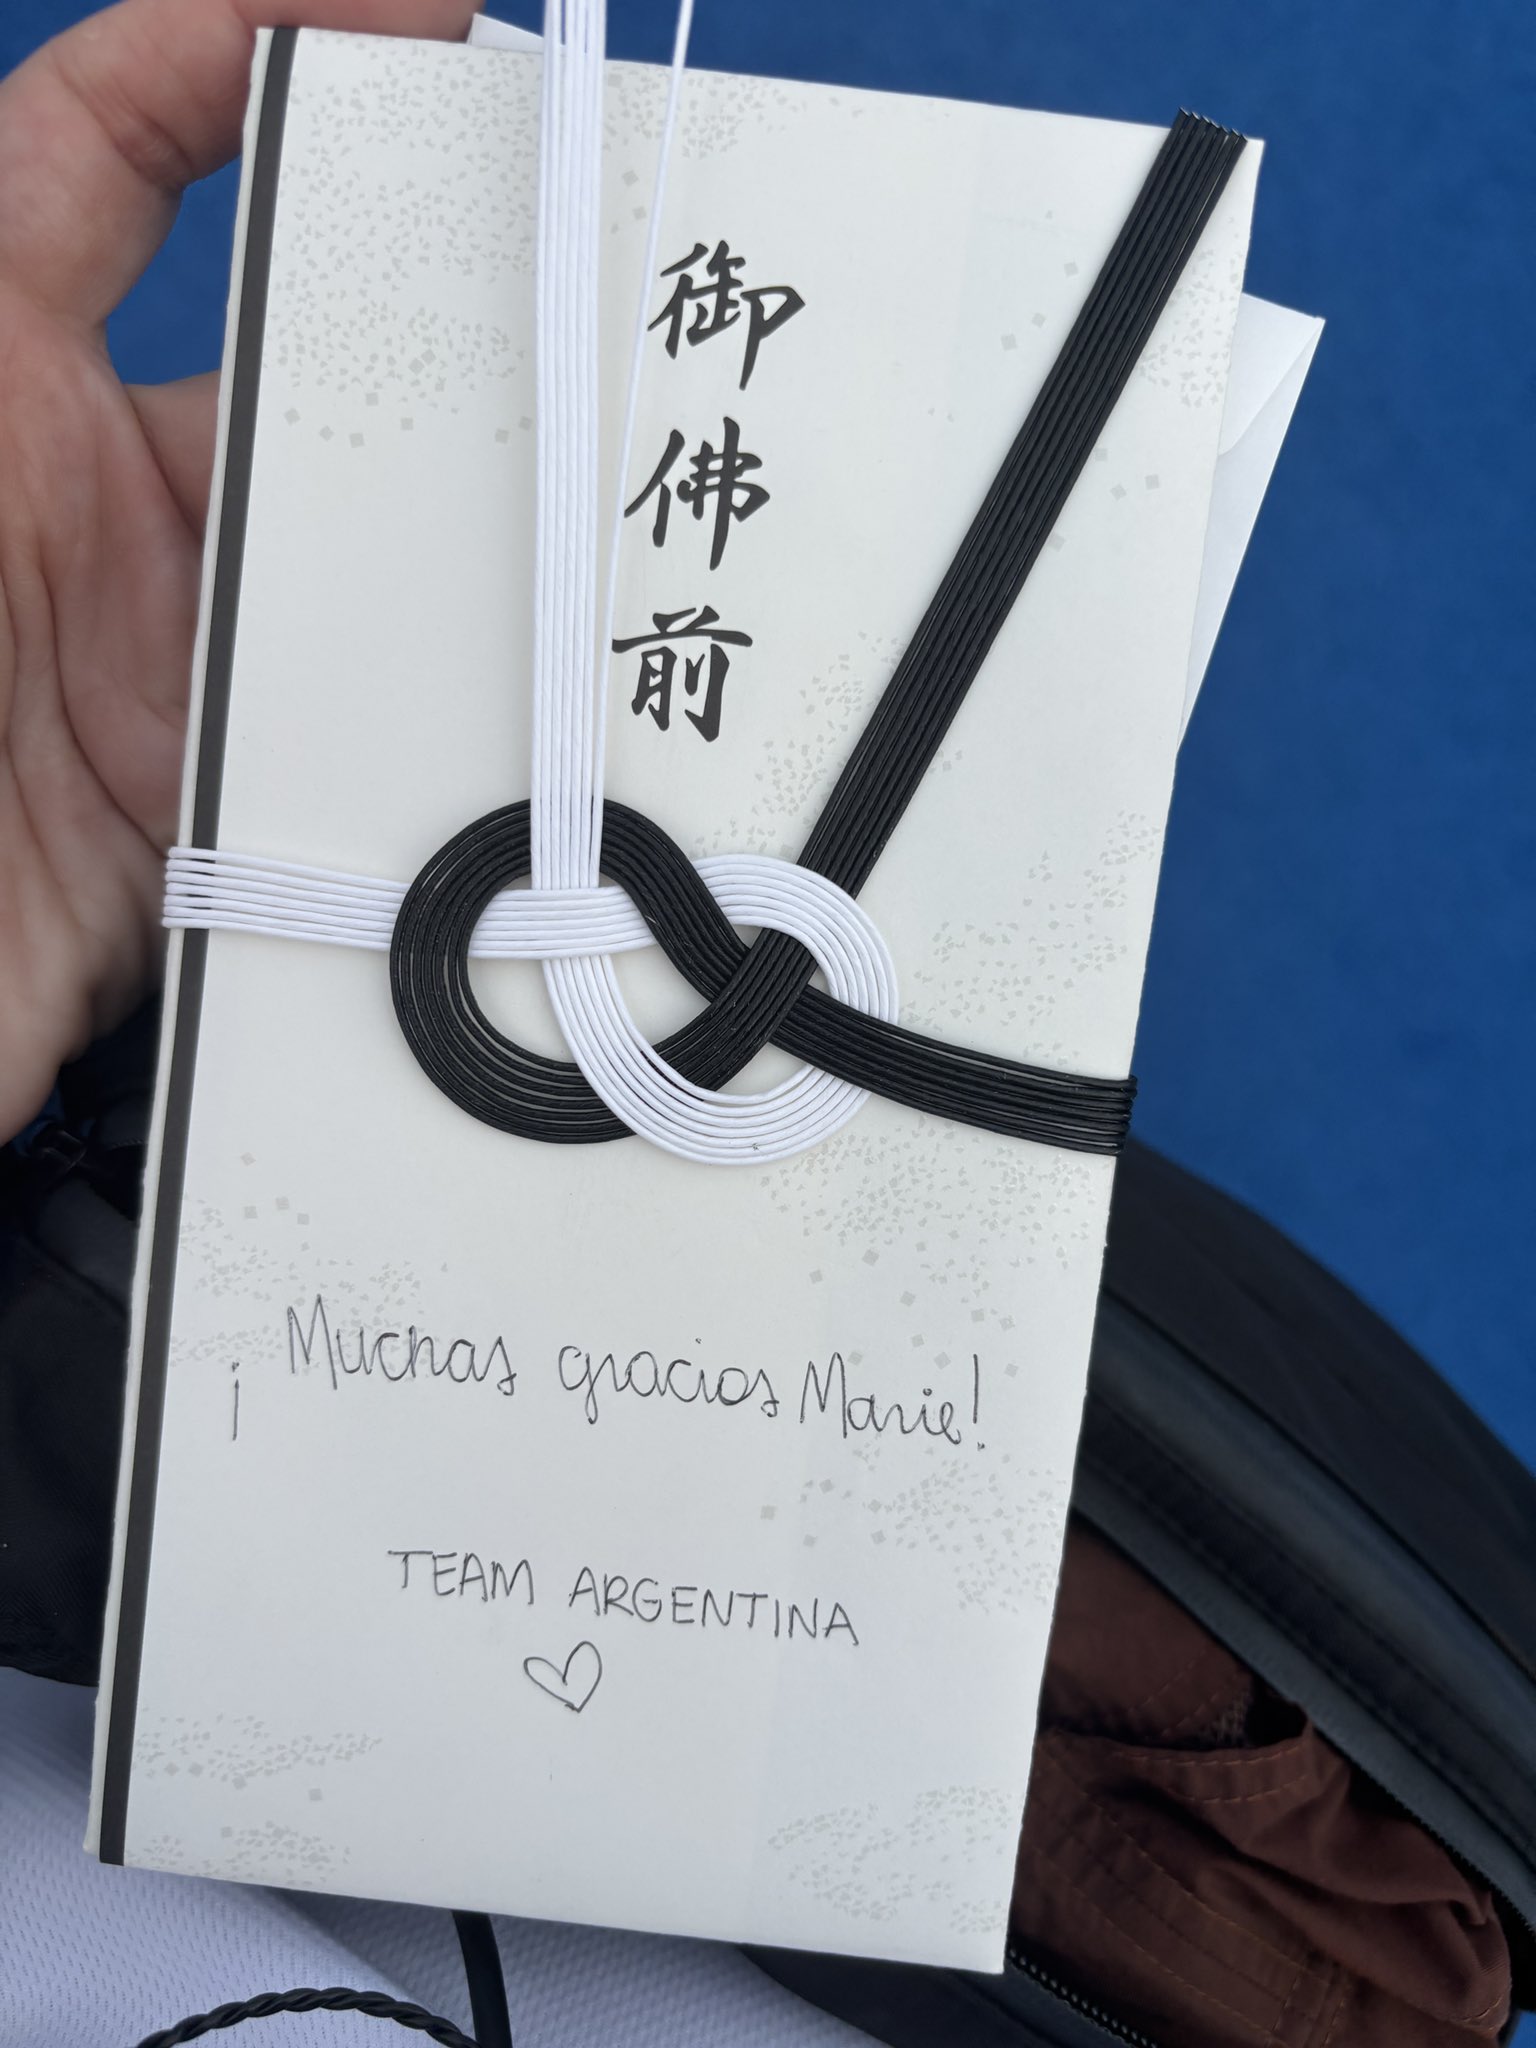 御佛前
¡Muchas gracias Marie!
TEAM ARGENTINA